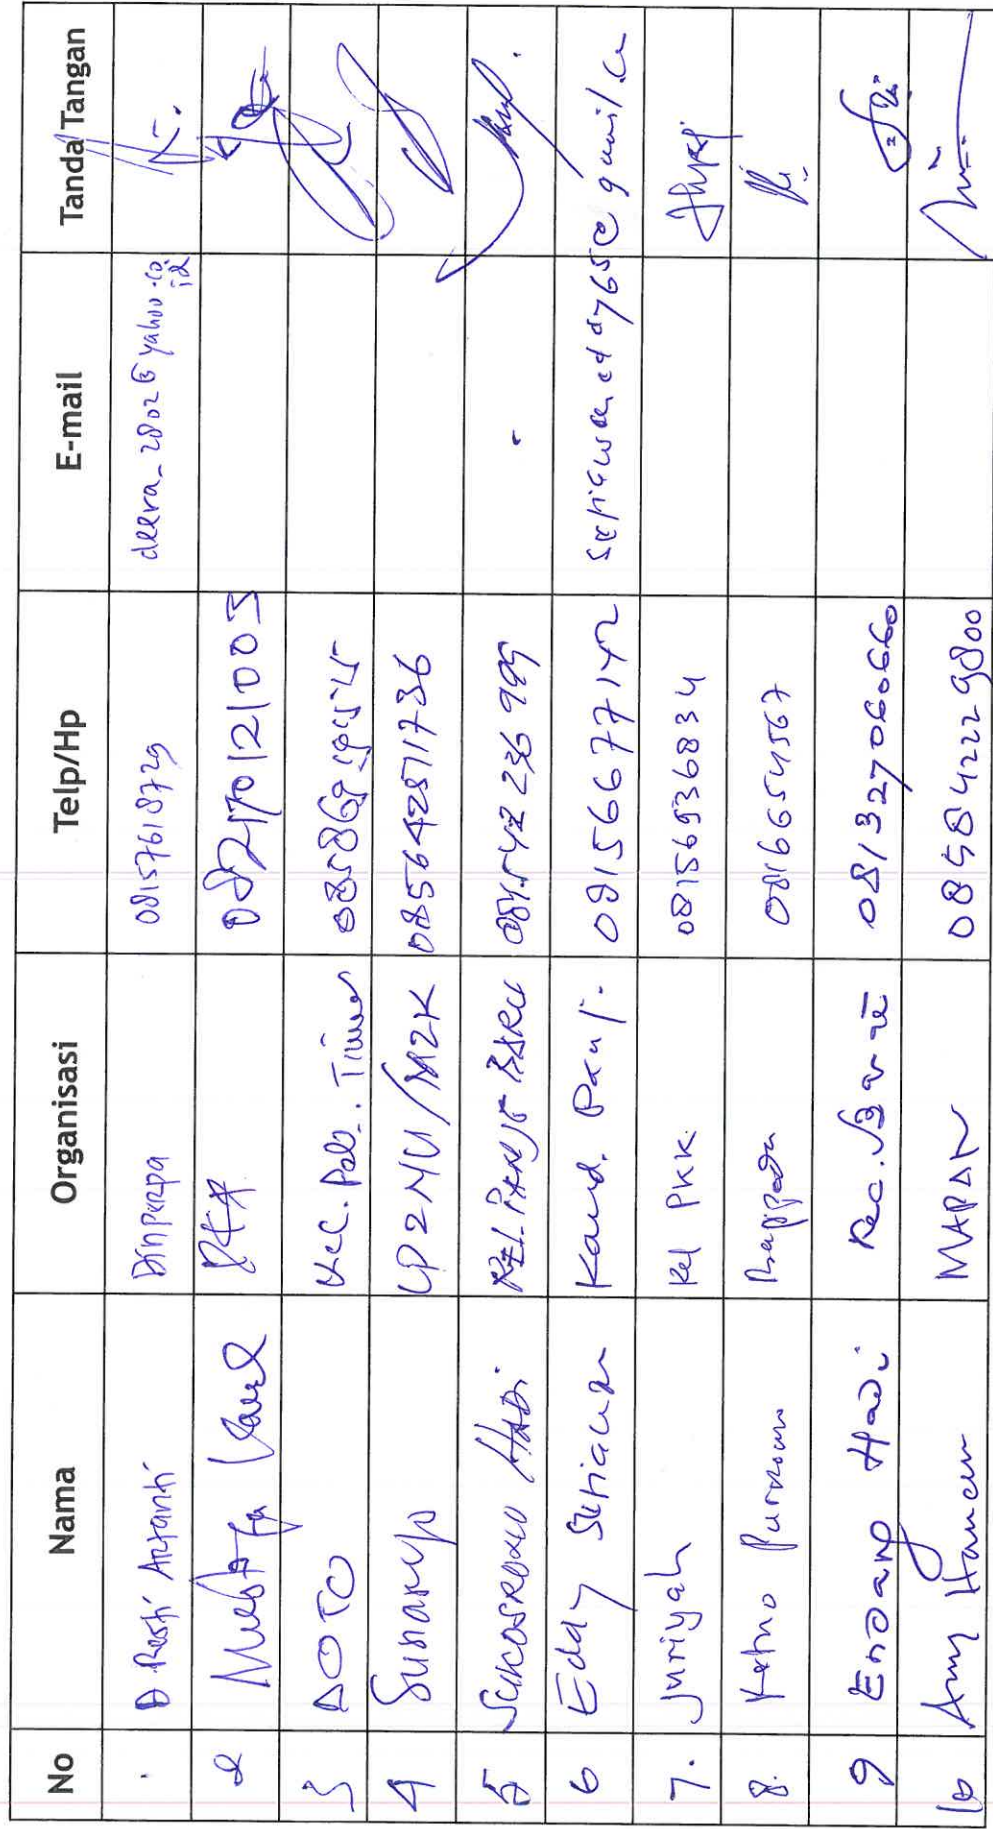 No Nama Organisasi Telp/Hp E-mail Tanda Tangan
. D. Resti Arianti Dinpurpa 08157618729 deera_2802@yahoo.co.id
2 082170121003
3 DOTO Kec. Pek. Timur
4 Sunaryo LP2NU/M2K 085642871736
5 SUKOSRONO HADI KEL. PANJG BARU
6 Eddy Setiawan Kand. Panj. 0815667714 setiawan eddy65@gmail.co
7. Juriyah Kel PKK. 08156936834
8. Ketno Purnomo Bappeda 0816654567
9 Endang Hadi Kec. Barat 081327060660
10 Amy Hancun MAPAN 085842229800